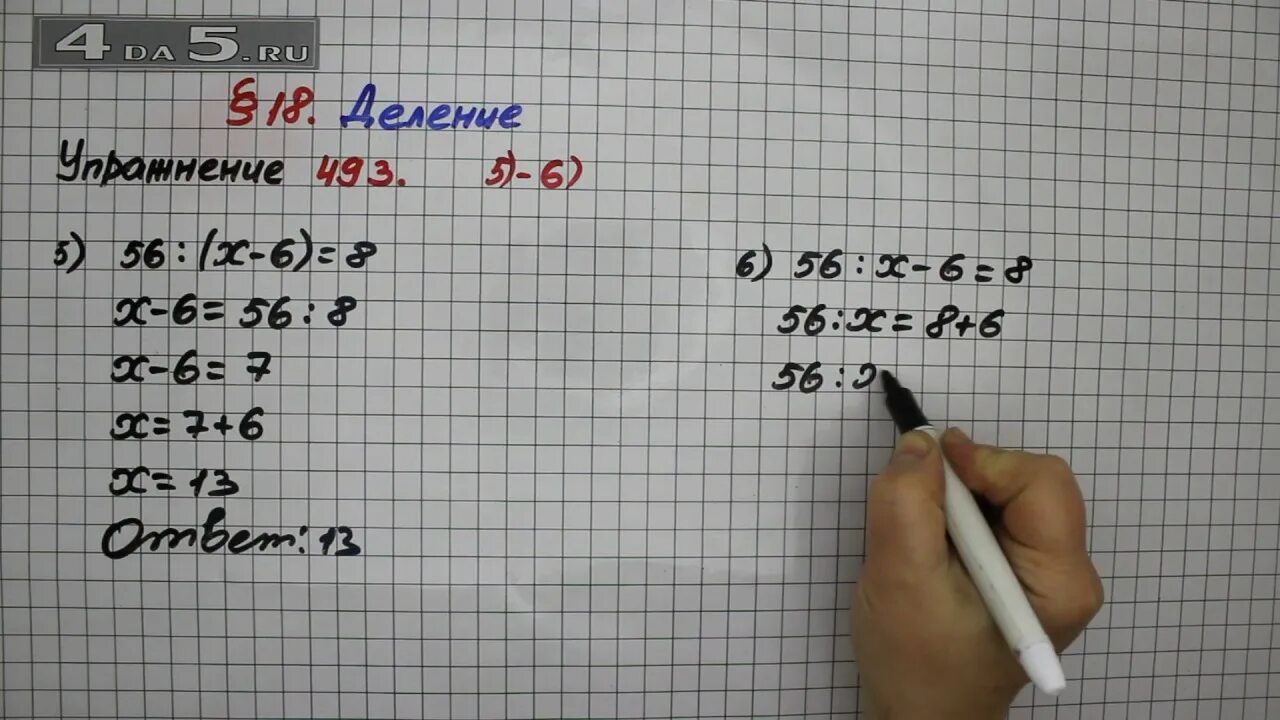 4DA5.RU
§ 18. Деление
Упражнение 493. 5)-6)
5) 56 : (x - 6) = 8
x - 6 = 56 : 8
x - 6 = 7
x = 7 + 6
x = 13
Ответ: 13
6) 56 : x - 6 = 8
56 : x = 8 + 6
56 : x